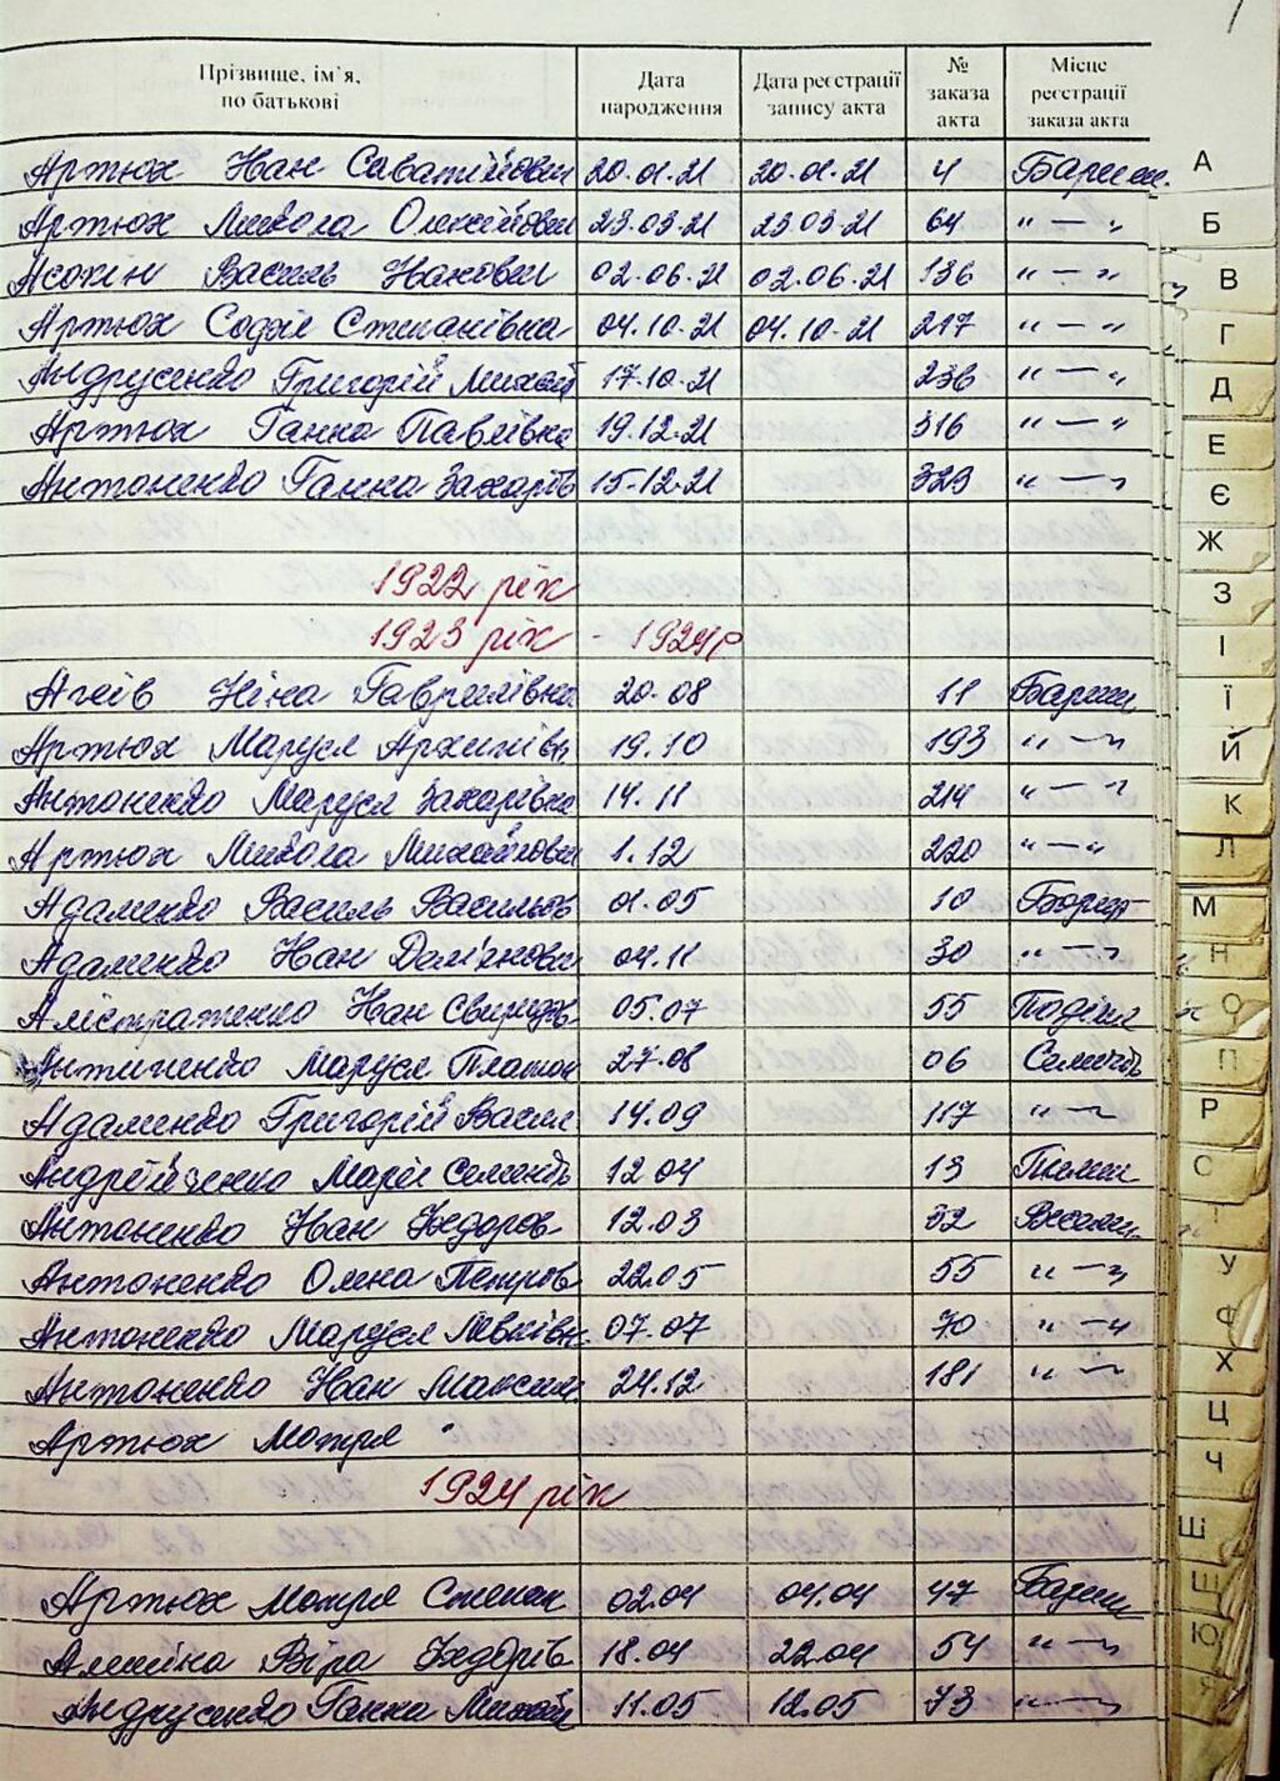 Прізвище, ім'я, по батькові Дата народження Дата реєстрації запису акта № заказа акта Місце реєстрації заказа акта
Артюх Іван Саватійович 20.01.21 20.01.21 4 Бариш.
Артюх Микола Олексійович 23.03.21 23.03.21 64 " — "
Василь Іванович 02.06.21 02.06.21 136 " — "
Артюх Софія Степанівна 04.10.21 04.10.21 217 " — "
Андрусенко Григорій Михай 17.10.21 236 " — "
Артюх Ганна Павлівна 19.12.21 316 " — "
Антоненко Ганна Захарів 15.12.21 329 " — "
1922 рік
1923 рік - 1924р
Агеїв Ніна Гаврилівна 20.08 11 Бариш
Артюх Маруся Архипівн 19.10 193 " — "
Антоненко Маруся Захарівна 14.11 214 " — "
Артюх Микола Михайлович 1.12 220 " — "
Адаменко Василь Васильов 01.05 10
Адаменко Іван Дем'янович 04.11 30 " — "
Іван Свиридов 05.07 55
Маруся Платон 27.08 06
Адаменко Григорій Васил 14.09 117 " — "
Андрійченко Марія Семенів 12.04 13
Антоненко Іван Федоров 12.03 32
Антоненко Олена Петров 22.05 55 " — "
Антоненко Маруся Левківн. 07.07 70 " — "
Антоненко Іван Максим. 24.12 181 " — "
Артюх Мотря "
1924 рік
Артюх Мотря Степан 02.04 04.04 47 Бариш
Віра Федорів 18.04 22.04 54 " — "
Андрусенко Ганна Михай 11.05 12.05 73 " — "
А
Б
В
Г
Д
Е
Є
Ж
З
І
Ї
Й
К
Л
М
Н
О
П
Р
С
Т
У
Ф
Х
Ц
Ч
Ш
Щ
Ю
Я